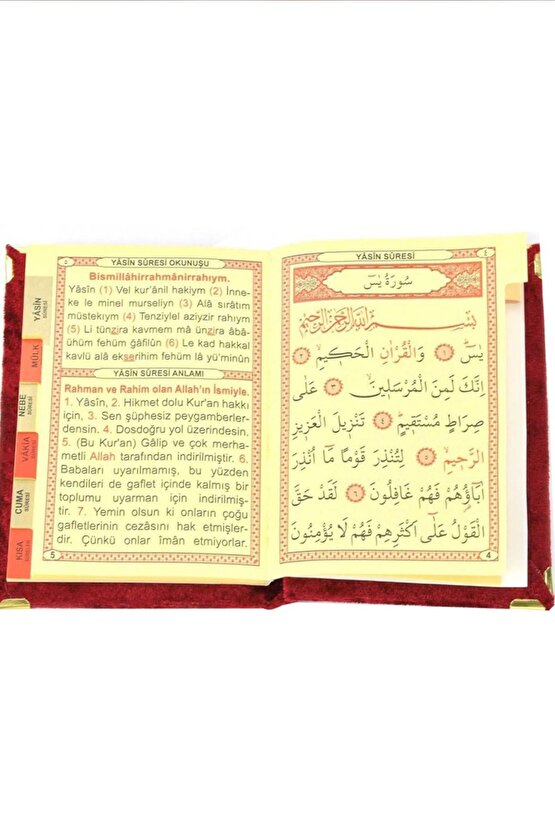 YÂSİN SÛRESİ
MÜLK
NEBE
SÛRESİ
VÂKIA
SÛRESİ
CUMA
SÛRESİ
KISA
٥
YÂSİN SÛRESİ OKUNUŞU
Bismillâhirrahmânirrahıym.
Yâsîn (1) Vel kur'ânil hakiym (2) İnne-
ke le minel murseliyn (3) Alâ sırâtım
müstekıym (4) Tenziylel aziyzir rahıym
(5) Li tünzira kavmem mâ ünzira âbâ-
ühüm fehüm gâfilûn (6) Le kad hakkal
kavlü alâ ekserihim fehüm lâ yü'minûn
YÂSİN SÛRESİ ANLAMI
Rahman ve Rahim olan Allah'ın İsmiyle.
1. Yâsîn, 2. Hikmet dolu Kur'an hakkı
için, 3. Sen şüphesiz peygamberler-
densin. 4. Dosdoğru yol üzerindesin.
5. (Bu Kur'an) Gâlip ve çok merha-
metli Allah tarafından indirilmiştir. 6.
Babaları uyarılmamış, bu yüzden
kendileri de gaflet içinde kalmış bir
toplumu uyarman için indirilmiş-
tir. 7. Yemin olsun ki onların çoğu
gafletlerinin cezasını hak etmişler-
dir. Çünkü onlar îmân etmiyorlar.
5
YÂSİN SÛRESİ
٤
سُورَةُ يٰسٓ
بِسْمِ اللّٰهِ الرَّحْمٰنِ الرَّحِيمِ
يٰسٓ ﴿١﴾ وَالْقُرْاٰنِ الْحَكِيمِ ﴿٢﴾
اِنَّكَ لَمِنَ الْمُرْسَلِينَ ﴿٣﴾ عَلٰى
صِرَاطٍ مُسْتَقِيمٍ ﴿٤﴾ تَنْزِيلَ الْعَزِيزِ
الرَّحِيمِ ﴿٥﴾ لِتُنْذِرَ قَوْمًا مَٓا اُنْذِرَ
اٰبَٓاؤُ۬هُمْ فَهُمْ غَافِلُونَ ﴿٦﴾ لَقَدْ حَقَّ
الْقَوْلُ عَلٰٓى اَكْثَرِهِمْ فَهُمْ لَا يُؤْمِنُونَ
4